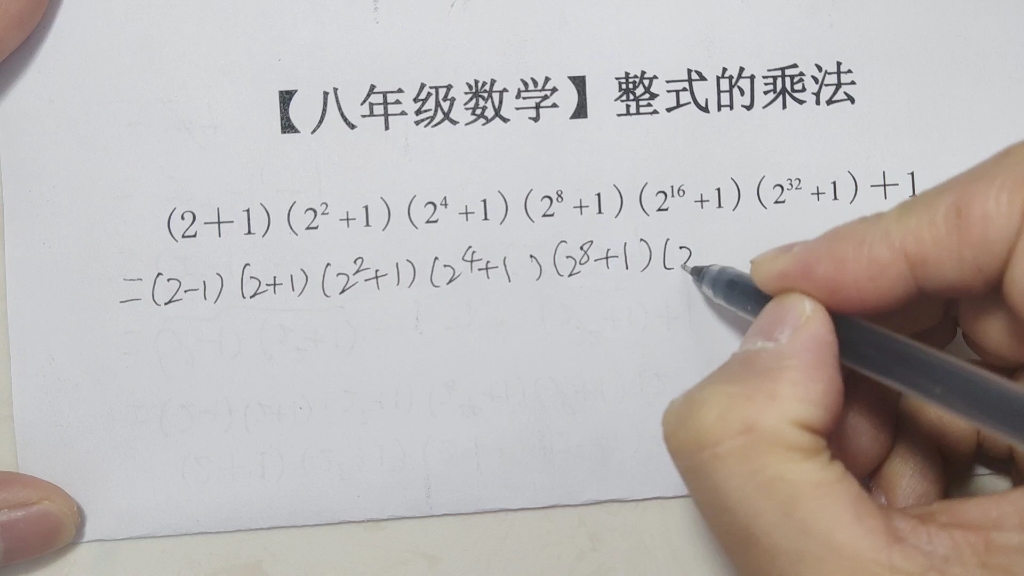 【八年级数学】整式的乘法
(2+1)(2²+1)(2⁴+1)(2⁸+1)(2¹⁶+1)(2³²+1)+1
=(2-1)(2+1)(2²+1)(2⁴+1)(2⁸+1)(2